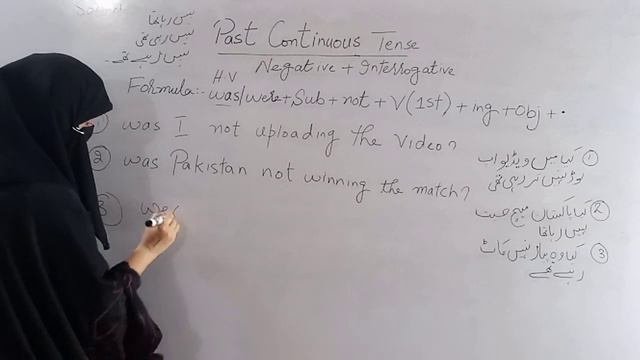 نہیں رہا تھا
نہیں رہی تھی
نہیں رہے تھے
Past Continuous Tense
Negative + Interrogative
H.V
Formula:- was/were + Sub + not + V(1st) + ing + Obj + .
was I not uploading the Video?
② was Pakistan not winning the match?
③ wer
① کیا میں ویڈیو اپ
لوڈ نہیں کر رہی تھی
② کیا پاکستان میچ جیت
نہیں رہا تھا
③ کیا وہ پیاز نہیں کاٹ
رہے تھے